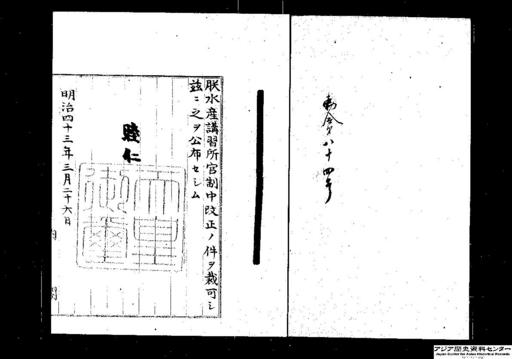 勅令第八十四号
朕水産講習所官制中改正ノ件ヲ裁可シ
茲ニ之ヲ公布セシム
睦仁
天皇御璽
明治四十三年三月二十六日
内閣
アジア歴史資料センター
Japan Center for Asian Historical Records